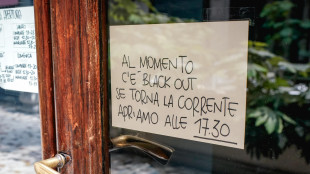 AL MOMENTO
C'E' BLACK OUT
SE TORNA LA CORRENTE
APRIAMO ALLE 17.30